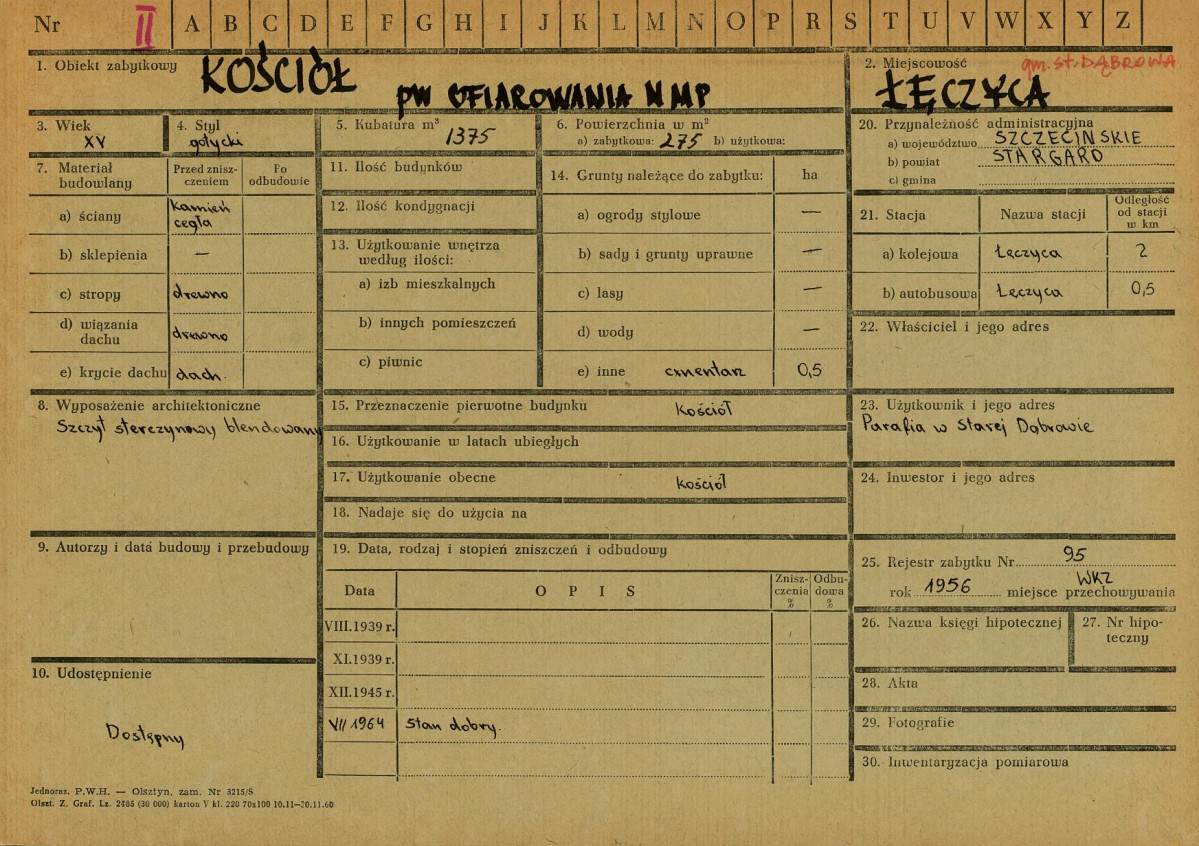 Nr II A B C D E F G H I J K L M N O P R S T U V W X Y Z
1. Obiekt zabytkowy KOŚCIÓŁ
pw OFIAROWANIA NMP
2. Miejscowość gm. St. DĄBROWA
ŁĘCZYCA
3. Wiek
XV
4. Styl
gotycki
5. Kubatura m³ 1375
6. Powierzchnia w m²
a) zabytkowa: 275 b) użytkowa:
20. Przynależność administracyjna
a) województwo SZCZECIŃSKIE
b) powiat STARGARD
c) gmina
7. Materiał budowlany
Przed zniszczeniem
Po odbudowie
a) ściany kamień
cegła
b) sklepienia —
c) stropy drewno
d) wiązania dachu drewno
e) krycie dachu dach.
11. Ilość budynków
12. Ilość kondygnacji
13. Użytkowanie wnętrza
według ilości:
a) izb mieszkalnych
b) innych pomieszczeń
c) piwnic
14. Grunty należące do zabytku: ha
a) ogrody stylowe —
b) sady i grunty uprawne —
c) lasy —
d) wody —
e) inne cmentarz 0,5
21. Stacja Nazwa stacji Odległość od stacji w km
a) kolejowa Łęczyca 2
b) autobusowa Łęczyca 0,5
22. Właściciel i jego adres
8. Wyposażenie architektoniczne
Szczyt sterczynowy blendowany
15. Przeznaczenie pierwotne budynku kościół
16. Użytkowanie w latach ubiegłych
17. Użytkowanie obecne kościół
18. Nadaje się do użycia na
23. Użytkownik i jego adres
Parafia w Starej Dąbrowie
24. Inwestor i jego adres
9. Autorzy i data budowy i przebudowy
19. Data, rodzaj i stopień zniszczeń i odbudowy
Data OPIS Zniszczenia % Odbudowa %
VIII.1939 r.
XI.1939 r.
XII.1945 r.
VII 1964 Stan dobry.
25. Rejestr zabytku Nr 95
rok 1956 miejsce przechowywania WKZ
26. Nazwa księgi hipotecznej
27. Nr hipoteczny
28. Akta
29. Fotografie
30. Inwentaryzacja pomiarowa
10. Udostępnienie
Dostępny
Jednoraz. P.W.H. — Olsztyn, zam. Nr 3215/S
Olszt. Z. Graf. Lz. 2485 (30 000) karton V kl. 220 70x100 10.11—30.11.60